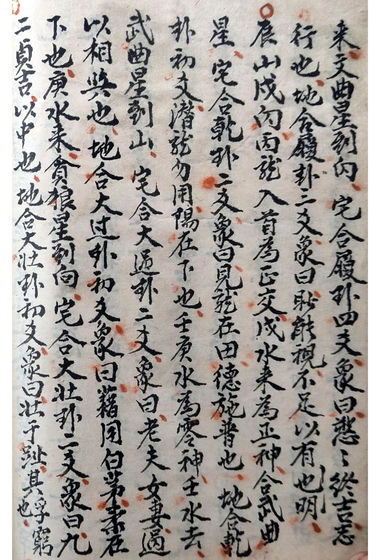 来文曲星到向 宅合履卦四爻象曰愬〻終吉志
行也 地合履卦二爻象曰眇能視不足以有也明
辰山戍向丙龍入首為正交戍水來為正神合武曲
星 宅合乾卦二爻象曰見龍在田德施普也 地合乾
卦初爻潛龍勿用陽在下也壬庚水為零神壬水去
武曲星到山 宅合大過卦二爻象曰老夫女妻過
以相與也 地合大过卦初爻象曰藉用白茅柔在
下也庚水来貪狼星到向 宅合大壯卦二爻象曰九
二貞吉以中也 地合大壮卦初爻象曰壮于趾其孚窮也